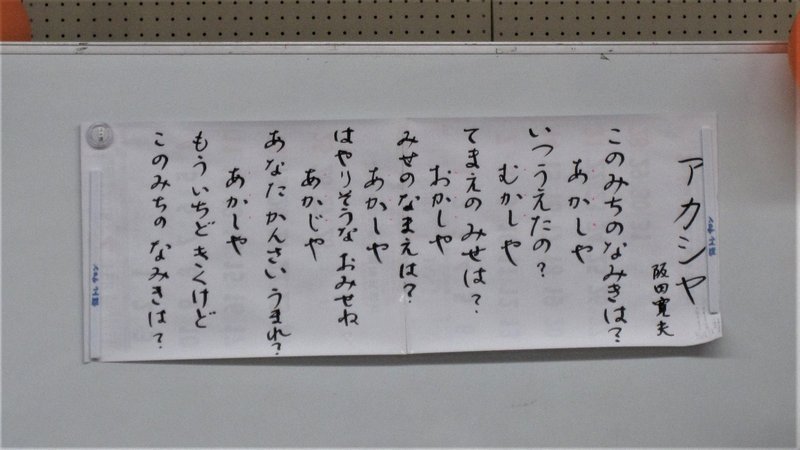 アカシヤ
阪田寛夫
このみちのなみきは？
あかしや
いつうえたの？
むかしや
てまえの みせは？
おかしや
みせのなまえは？
あかしや
はやりそうな おみせね
あかじや
あなた かんさい うまれ？
あかしや
もういちど きくけど
このみちの なみきは？